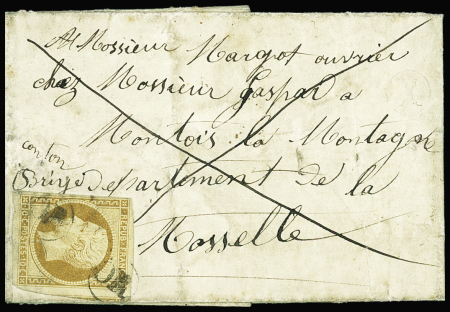 A Mossieur Margot ouvrier
chez Mossieur Gaspar a
Montois la Montagne
conton
(Briye) departement de la
Mosselle
REPUB. FRANC.